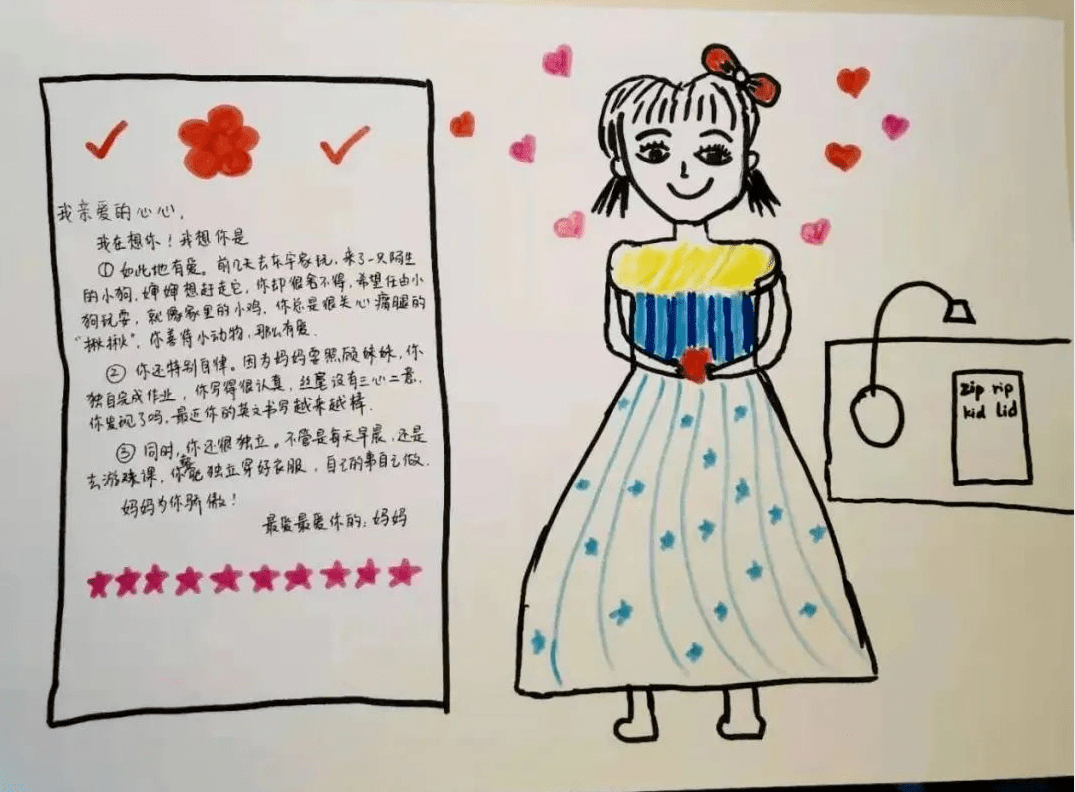 我亲爱的心心,
我在想你!我想你是
①如此地有爱。前几天去东宇家玩,来了一只陌生
的小狗,婶婶想赶走它,你却很舍不得,希望任由小
狗玩耍,就像家里的小鸡,你总是很关心瘸腿的
“揪揪”,你善待小动物,那么有爱.
②你还特别自律。因为妈妈要照顾妹妹,你
独自完成作业,你写得很认真,丝毫没有三心二意.
你发现了吗,最近你的英文书写越来越棒.
③同时,你还很独立。不管是每天早晨,还是
去游泳课,你都能独立穿好衣服,自己的事自己做.
妈妈为你骄傲!
最爱最爱你的:妈妈
zip rip
kid lid